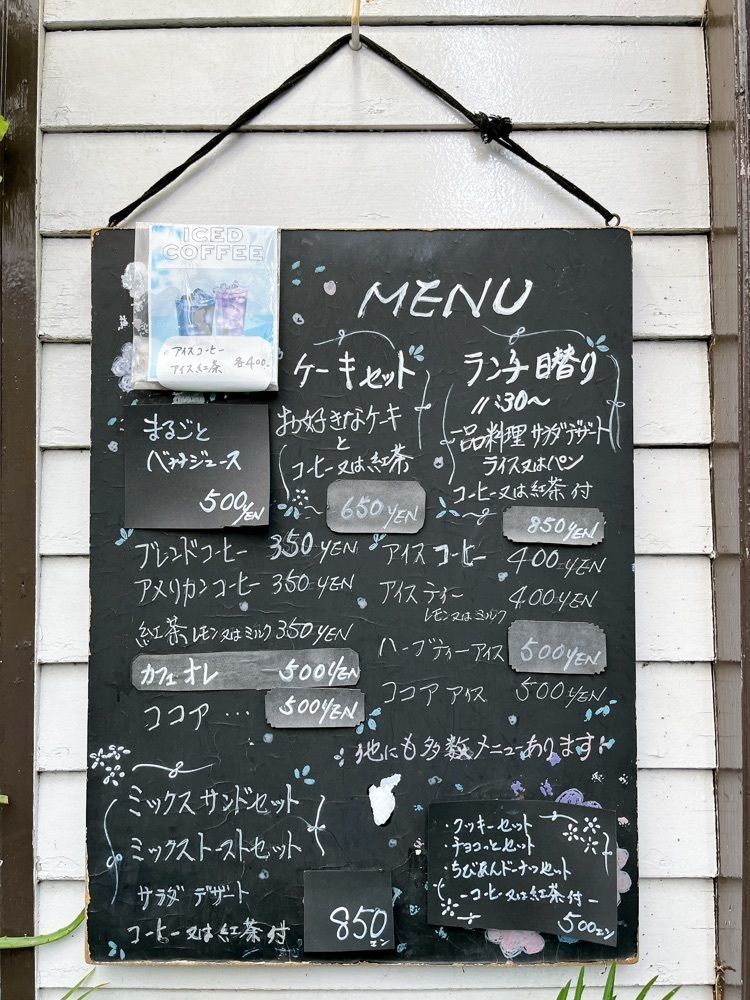 ICED
COFFEE
アイスコーヒー
アイス紅茶 各400-
MENU
まるごと
バナナジュース
500YEN
ケーキセット
お好きなケーキ
と
コーヒー又は紅茶
650YEN
ランチ 日替り
11:30〜
一品料理 サラダ デザート
ライス又はパン
コーヒー又は紅茶付
850YEN
ブレンドコーヒー 350YEN
アメリカンコーヒー 350YEN
紅茶 レモン又はミルク 350YEN
カフェオレ 500YEN
ココア … 500YEN
アイスコーヒー 400YEN
アイスティー 400YEN
レモン又はミルク
ハーブティーアイス 500YEN
ココア アイス 500YEN
他にも多数メニューあります!
ミックスサンドセット
ミックストーストセット
サラダ デザート
コーヒー又は紅茶付
850エン
・クッキーセット
・チョコっとセット
・ちびあんドーナツセット
-コーヒー又は紅茶付-
500エン